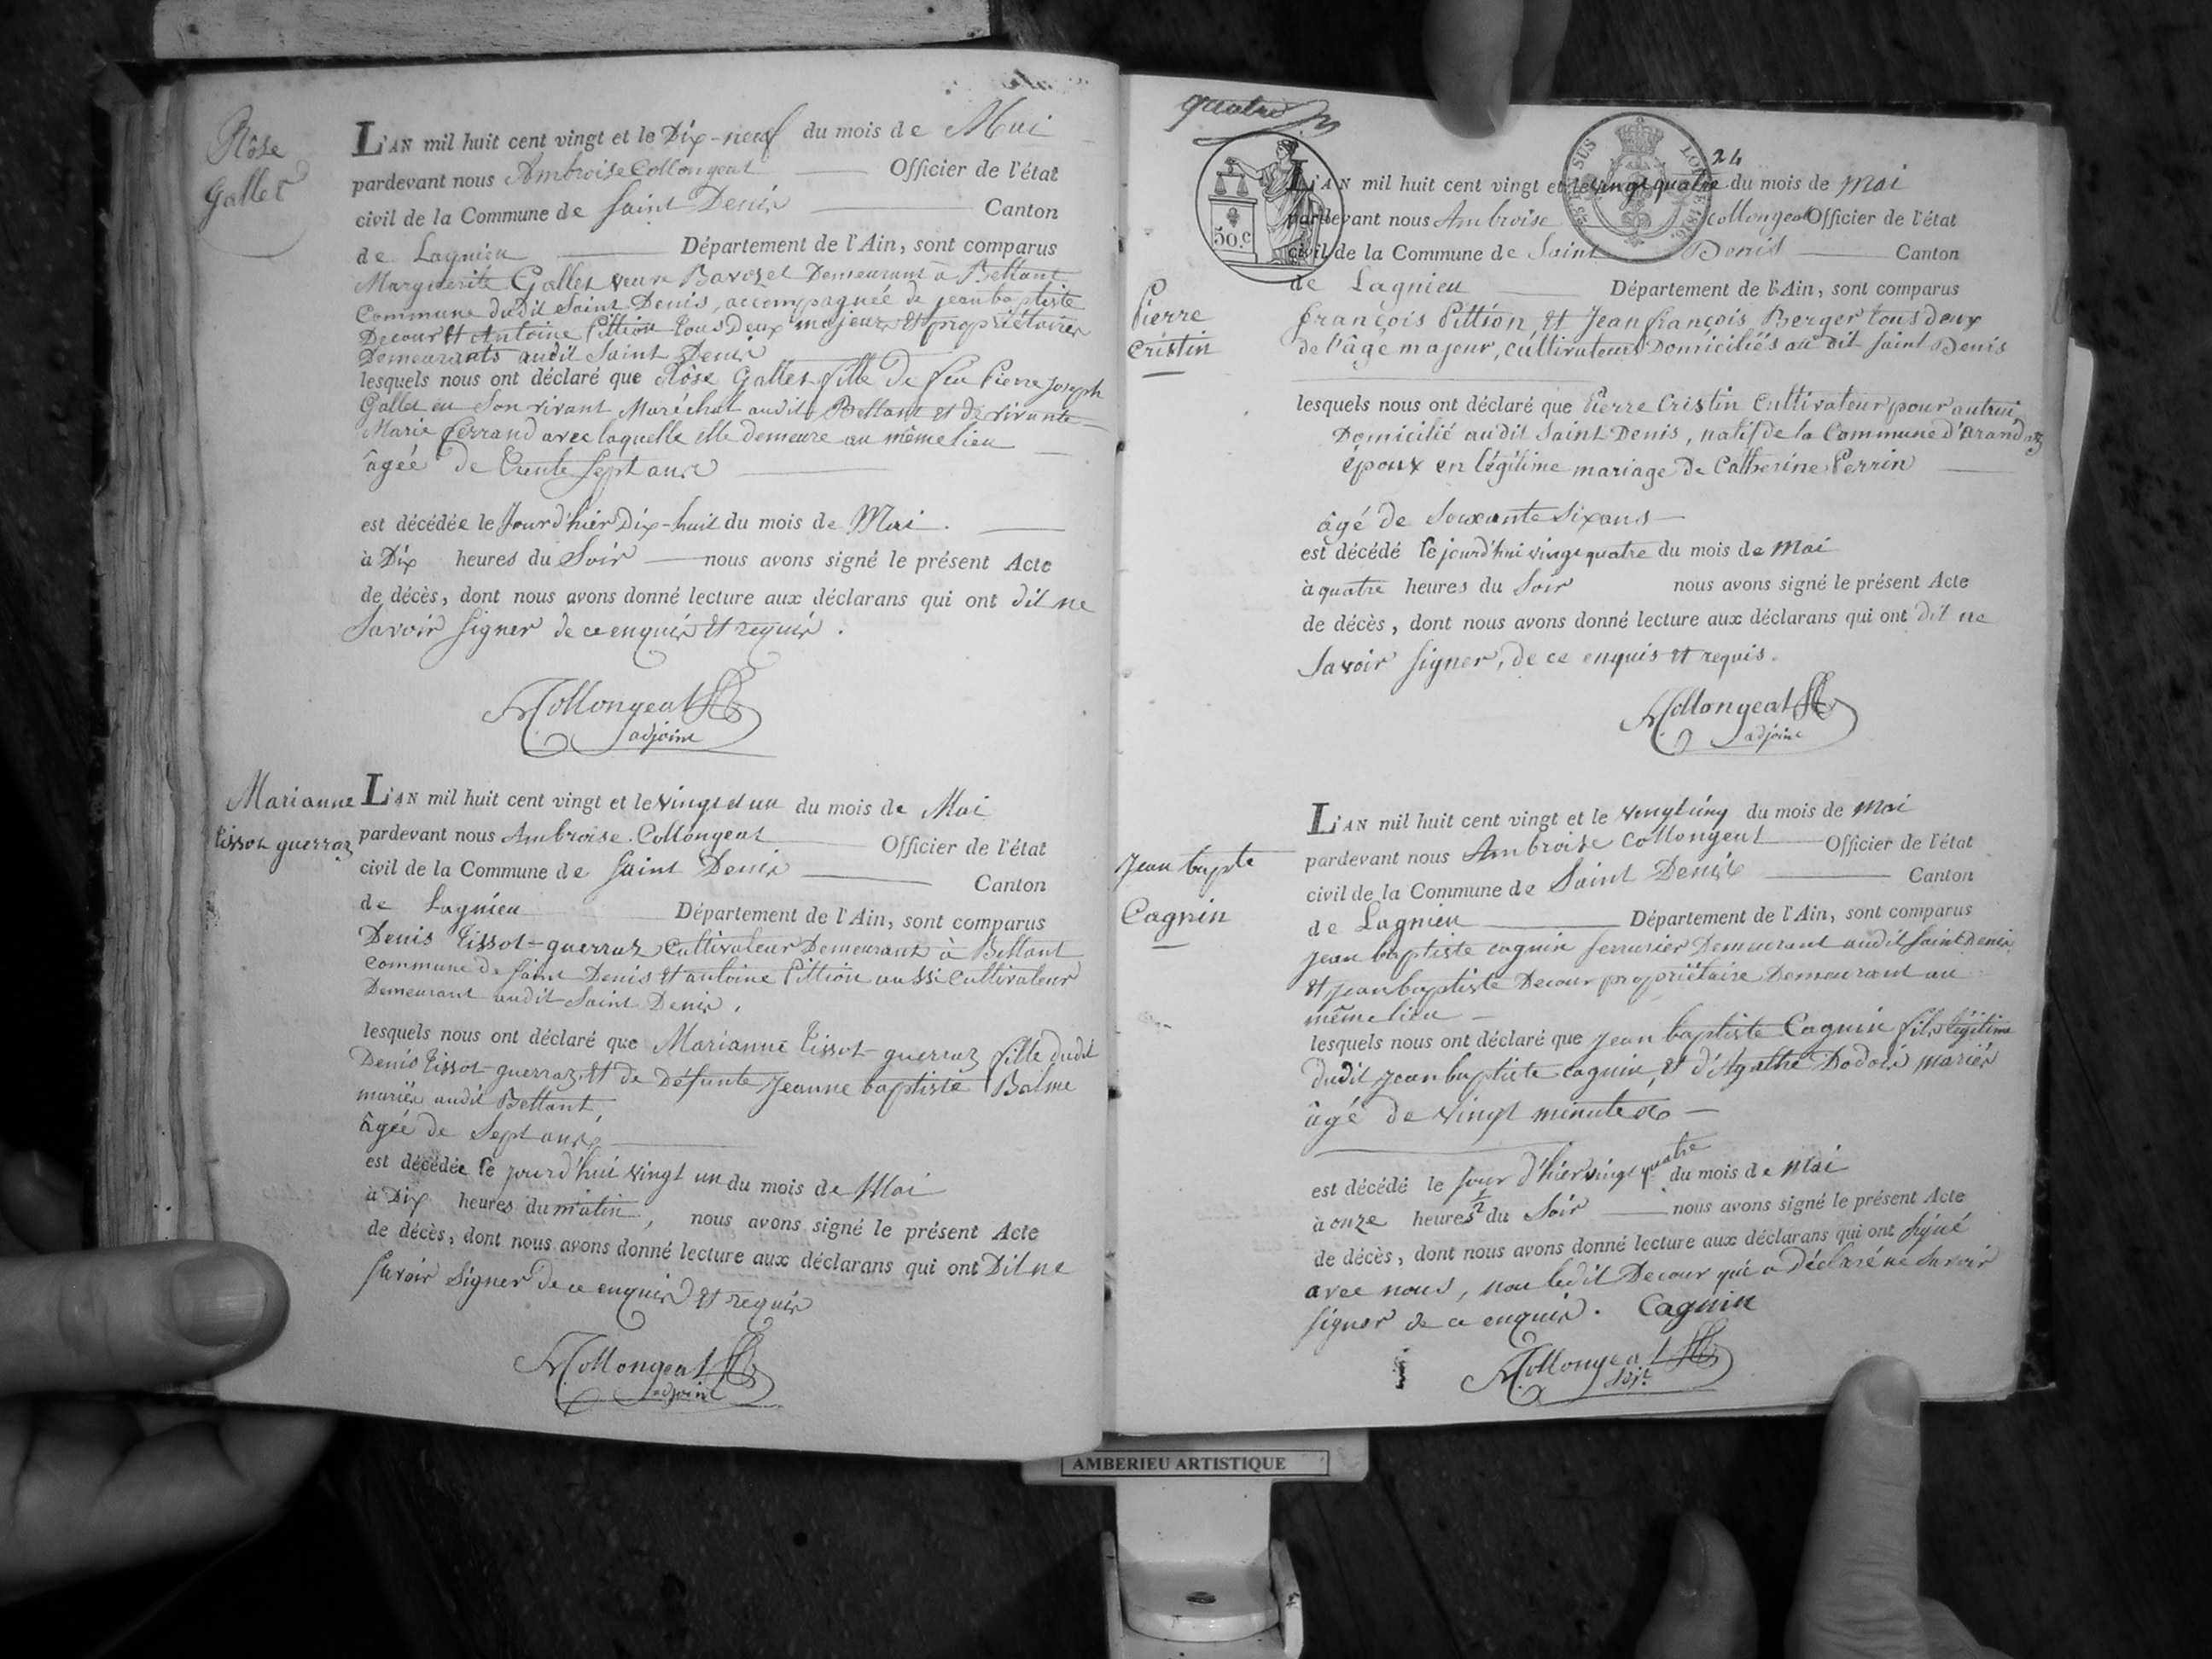 Rose
Gallet
L'AN mil huit cent vingt et le Dix-neuf du mois de Mai
pardevant nous Ambroise Collongeat Officier de l'état
civil de la Commune de Saint Denis Canton
de Lagnieu Département de l'Ain, sont comparus
Marguerite Gallet veuve Bavozet Demeurant à Bettant
Commune dudit Saint Denis, accompagnée de jean baptiste
Decour et Antoine Pittion tous Deux majeurs et propriétaires
Demeurants audit Saint Denis
lesquels nous ont déclaré que Rose Gallet fille de feu Pierre Joseph
Gallet en son vivant Maréchal audit Bettant et de vivante
Marie Ferrand avec laquelle elle demeure au même lieu
âgée de Trente sept ans
est décédée le Jour d'hier Dix-huit du mois de Mai.
à Dix heures du Soir nous avons signé le présent Acte
de décès, dont nous avons donné lecture aux déclarans qui ont dit ne
Savoir signer de ce enquis et requis.
Collongeat
adjoint
Marianne
tissot guerraz
L'AN mil huit cent vingt et le vingt et un du mois de Mai
pardevant nous Ambroise Collongeat Officier de l'état
civil de la Commune de Saint Denis Canton
de Lagnieu Département de l'Ain, sont comparus
Denis tissot-guerraz Cultivateur Demeurant à Bettant
commune de Saint Denis et antoine Pittion aussi Cultivateur
Demeurant audit Saint Denis,
lesquels nous ont déclaré que Marianne tissot-guerraz fille dudit
Denis tissot-guerraz et de Défunte jeanne baptiste Balme
mariés audit Bettant,
âgée de Sept ans
est décédée le jourd'hui vingt un du mois de Mai
à Dix heures du matin, nous avons signé le présent Acte
de décès, dont nous avons donné lecture aux déclarans qui ont Dit ne
savoir signer de ce enquis et requis
Collongeat
adjoint
quatre
50.c
24
L'AN mil huit cent vingt et le vingt quatre du mois de Mai
pardevant nous Ambroise Collongeat Officier de l'état
civil de la Commune de Saint Denis Canton
de Lagnieu Département de l'Ain, sont comparus
Pierre
Cristin
françois Pittion, et Jean françois Berger tous deux
de l'âge majeur, cultivateurs Domiciliés au dit Saint Denis
lesquels nous ont déclaré que Pierre Cristin Cultivateur pour autrui
Domicilié audit Saint Denis, natif de la Commune d'arandaz
époux en légitime mariage de Catherine Perrin
âgé de Soixante Six ans
est décédé le jourd'hui vingt quatre du mois de Mai
à quatre heures du Soir nous avons signé le présent Acte
de décès, dont nous avons donné lecture aux déclarans qui ont dit ne
Savoir signer, de ce enquis et requis.
Collongeat
adjoint
Jean bapte
Cagnin
L'AN mil huit cent vingt et le vingt cinq du mois de Mai
pardevant nous Ambroise Collongeat Officier de l'état
civil de la Commune de Saint Denis Canton
de Lagnieu Département de l'Ain, sont comparus
jean baptiste cagnin serrurier Demeurant audit Saint Denis
et jean baptiste Decour propriétaire Demeurant au
même lieu
lesquels nous ont déclaré que jean baptiste Cagnin fils légitime
dudit jean baptiste cagnin, et d'Agathe Dodoli mariés
âgé de vingt minutes
est décédé le jour d'hier vingt quatre du mois de Mai
à onze heures ½ du Soir nous avons signé le présent Acte
de décès, dont nous avons donné lecture aux déclarans qui ont signé
avec nous, non ledit Decour qui a déclaré ne savoir
signer de ce enquis. Cagnin
Collongeat
adjt
AMBERIEU ARTISTIQUE